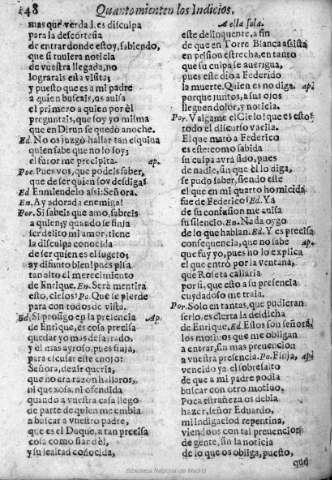 148 Quanto mienten los Indicios.
mas que verdad, es disculpa
para la descortesia
de entrar donde estoy, sabiendo,
que si tuviera noticia
de vuestra llegada, no
lograrais esta visita;
y puesto que es a mi padre
a quien buscais, os avisa
el primero a quien por èl
preguntais, que soy yo misma
que en Dirun se quedò anoche.
Ed. No os juzgò hallar tan esquina
quien sabe que no lo soy;
el furor me precipita. ap.
Por. Pues vos, què podeis saber,
que de ser quien soy desdiga?
Ed. Enmiendelo assi: Señora.
En. Ay adorada enemiga!
Por. Si sabeis que amo, sabreis
a quien; y quando se finja
ser delito mi amor, tiene
la disculpa conocida
de ser quien es el sugeto;
ay difunto bien! pues pisa
tan alto el merecimiento
de Enrique. En. Serà mentira
esto, cielos? Po. Que se pierde
para con todos de vista.
Ed. Si prosigo en la presencia Ap.
de Enrique, es cosa precisa
quedar yo mas desairado,
y el mas ayroso; pues finja,
para escusar este enojo:
Señora, dezir queria,
que no era razon hallaros,
ni que sola, ni ofendida
quando a vuestra casa llego
de parte de quien me embia
a buscar a vuestro padre,
que es el Duque, a tan precisa
cosa como fiar dèl,
y su lealtad conocida,
A ella sola.
este delinquente, a fin
de que en Torre Blanca asista
en prision estrecha, en tanto
que su culpa se averigua,
pues este diò a Federico
la muerte. Quien es no diga, ap
porque juntos, a sus ojos
lleguen dolor, y noticia.
Por. Valgame el Cielo! que es esto?
todo el discurso vacila.
El que matò a Federico
es este: como sabida
su culpa avrà sido, pues
de nadie, sin que èl lo diga,
se pudo saber, siendo este
el que en mi quarto homicida
fue de Federico? Ed. Ya
de su confusion me avisa
su silencio. En. Nada oygo
de lo que hablan. Ed. Y es precisa
consequencia, que no sabe ap.
que fuy yo, pues no lo explica
el que entrò por la ventana,
que Roseta callaria
por si, que esto a su presencia
cuydadoso me traìa.
Por. Solo en tantas, que pudieran
ser lo, es cierta la deidicha
de Enrique. Ed. Estos son señora
los motivos que me obligan
a entrar, sin mas prevencion
a vuestra presencia. Po. Finja, ap
vencido ya el sobresalto
de que a mi padre podia
buscar con otro motivo.
Poca estrañeza os debia
hazer, señor Eduardo,
mi indignacion repentina,
viendoos con tal prevencion
de gente, sin la noticia
de lo que os obliga, puesto,
que
Biblioteca Nacional de Madrid